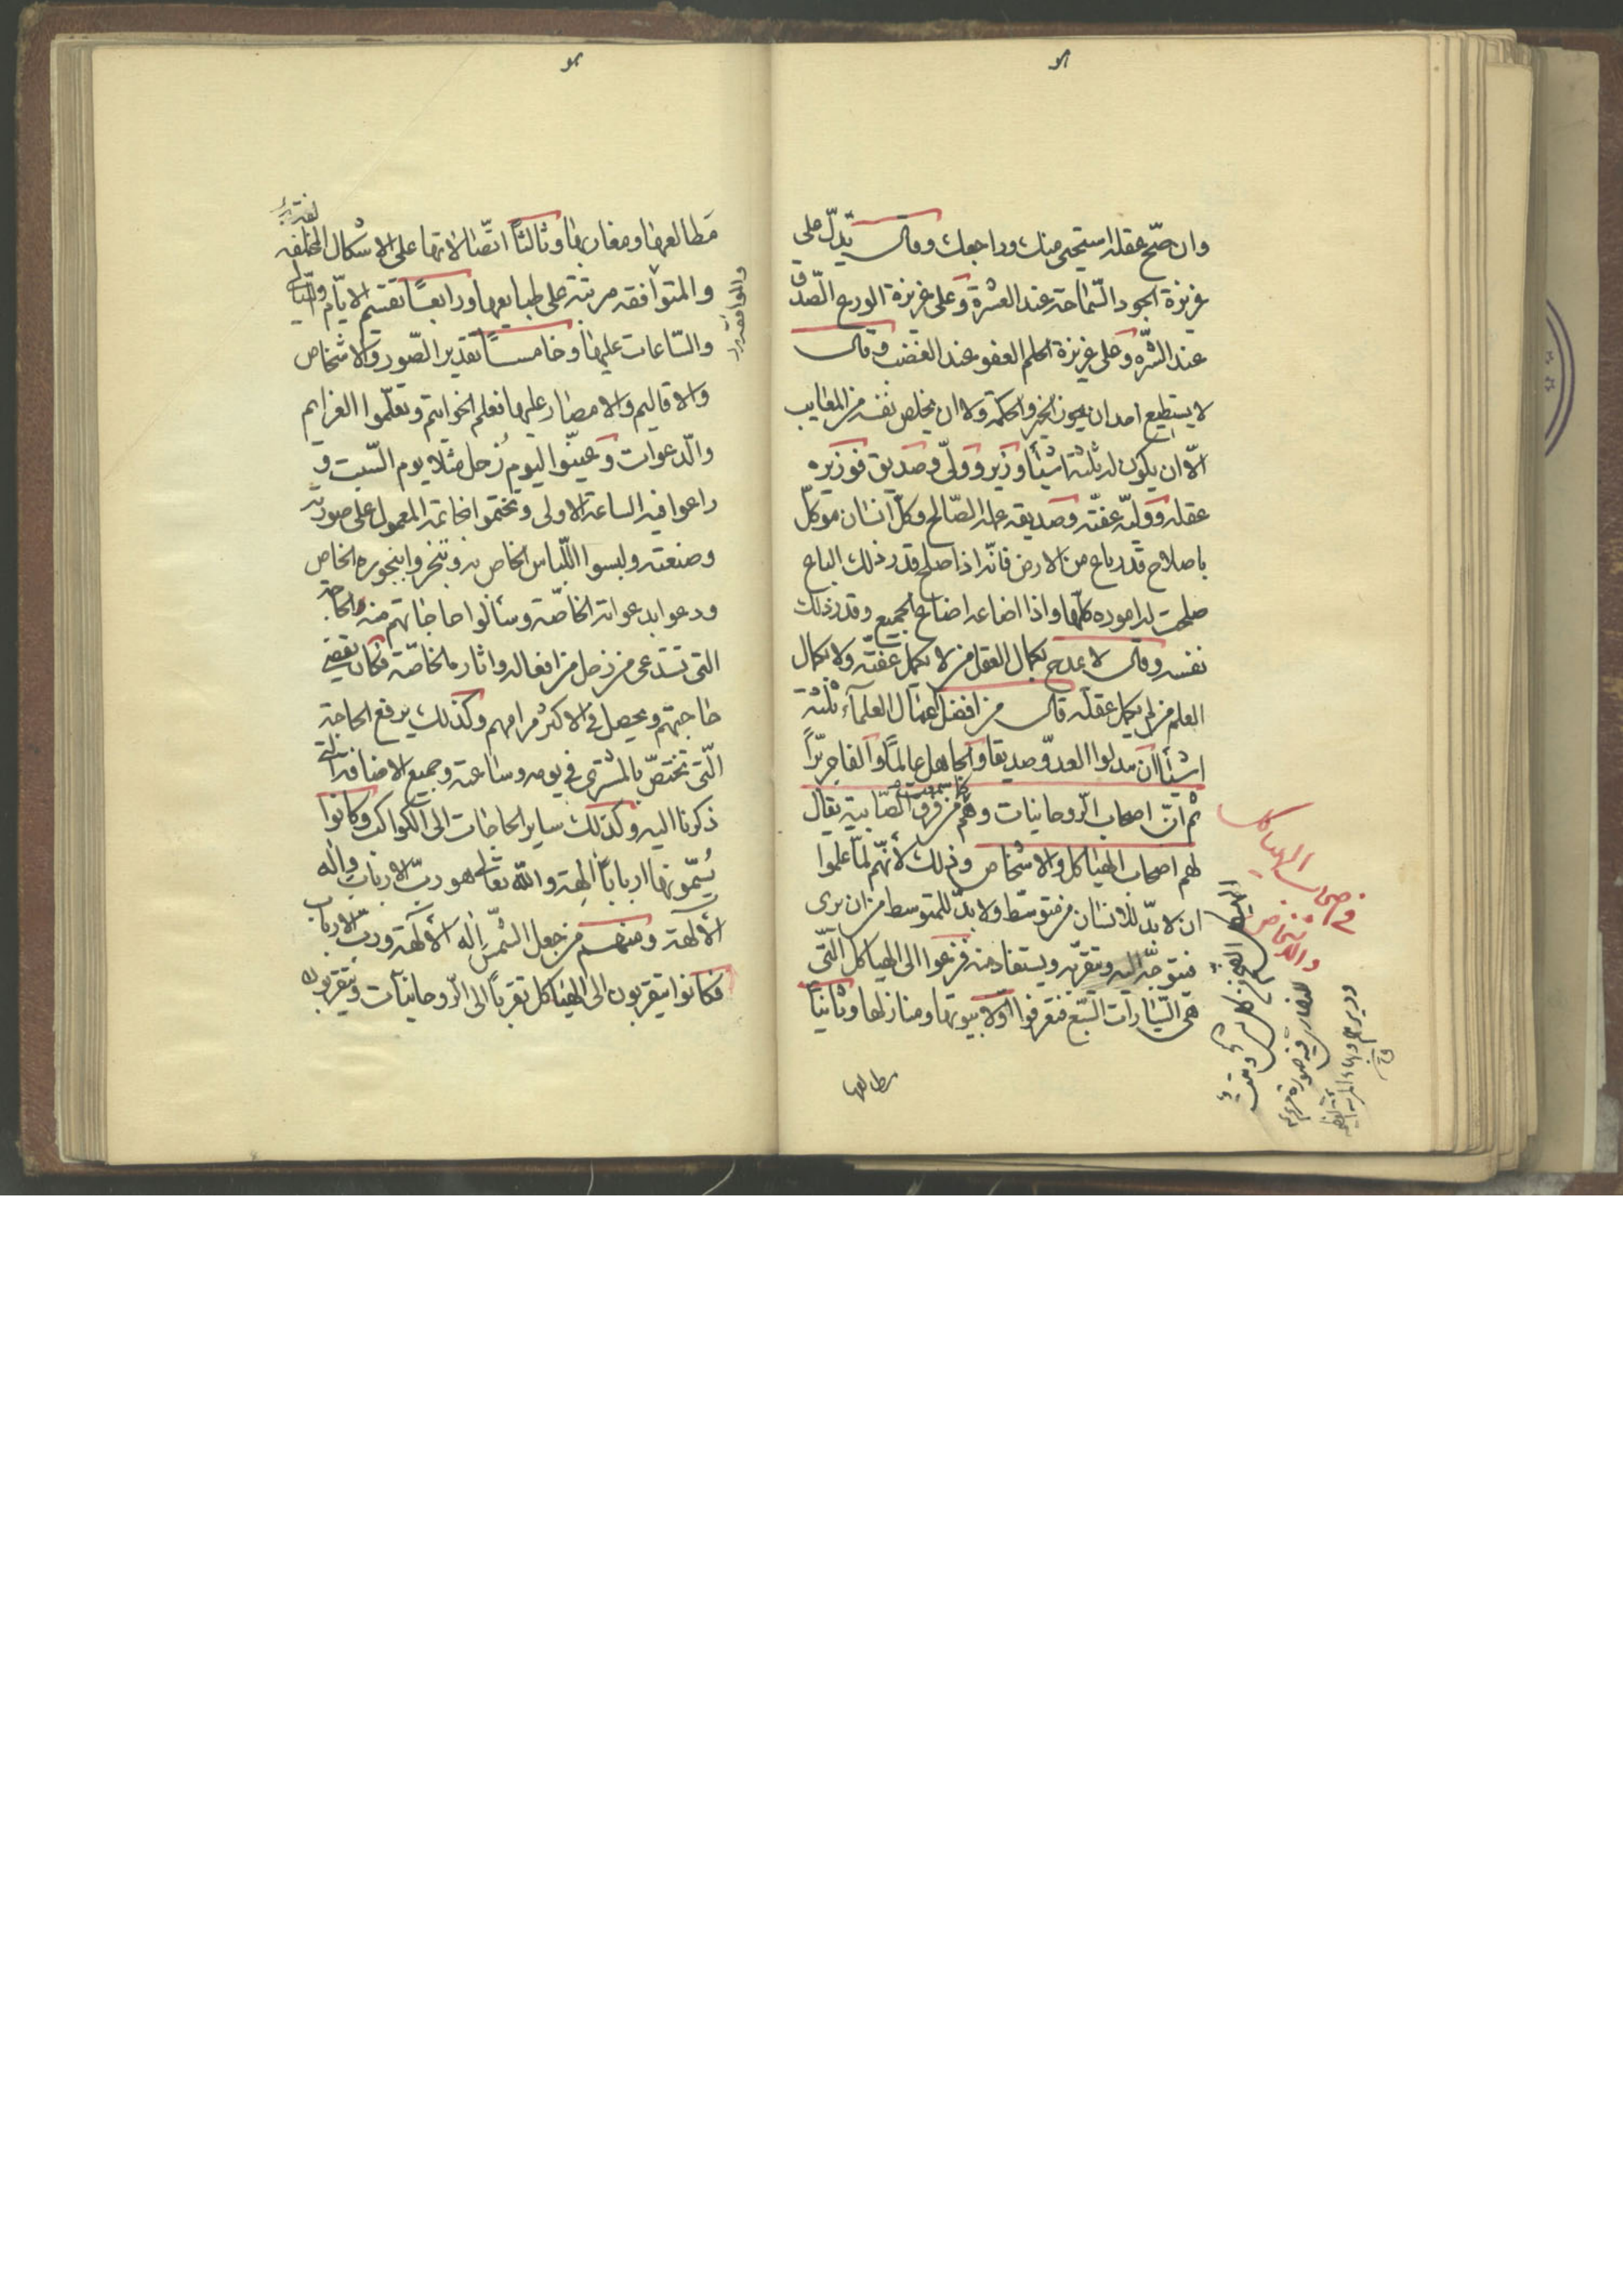 وان صحّ عقله استحيى منك وراجعك وقال تدلّ على
غريزة الجود السّماحة عند العشرة وعلى غريزة الورع الصّدق
عند الشّره وعلى غريزة الحلم العفو عند الغضب وقال
لا يستطيع احد ان يحوز الخير والحكمة ولا ان يخلص نفسه من المعايب
الّا ان يكون له ثلثة اشيآء وزير وولىّ وصديق فوزيره
عقله ووليّه عفّته وصديقه عمله الصّالح وكلّ انسان موكّل
باصلاح قدر باع من الارض فانّه اذا اصلح قدر ذلك الباع
صلحت له اموره كلّها واذا اضاعه اضاع الجميع وقدر ذلك
نفسه وقال لا يمدح بكمال العقل من لا يكمل عفّته ولا بكمال
العلم من لم يكمل عقله قال من افضل اعمال العلمآء ثلثة
اشيآء ان يبدلوا العدوّ صديقا والجاهل عالمًا والفاجر برّاً
ثم انّ اصحاب الرّوحانيات وهم من فرق الصّابية يقال
لهم اصحاب الهياكل والاشخاص وذلك لأنّهم لمّا علموا
ان لا بدّ للانسان من متوسّط ولا بدّ للمتوسط من ان يرى
فيتوجّه اليه ويتقرّب به ويستفاد منه فزعوا الى الهياكل الّتى
هى السّيّارات السّبع فتعرفوا اوّلا بيوتها ومنازلها وثانياً
مطالعها
فى اصحاب الهياكل
والاشخاص
مَطالعها ومغاربها وثالثاً اتّصالاتها على الاشكال المختلفه
والمتوافقه مرتبة على طبايعها ورابعًا تقسيم الايّام والليالى
والسّاعات عليها وخامسًا تقدير الصّور والاشخاص
والاقاليم والامصار عليها فعلم الخواتيم وتعلّموا العزايم
والدّعوات وعيّنوا ليوم زُحل مثلا يوم السّبت و
راعوا فيه الساعة الاولى وتختموا بخاتمه المعمول على صورته
وصنعته ولبسوا اللّباس الخاص به وتبخّروا ببخوره الخاص
ودعوا بدعواته الخاصّة وسألوا حاجاتهم منه الحاجة
التى تستدعى من زحل من افعاله واثاره الخاصّة فكان يقضى
حاجتهم ويحصل فى الاكثر مرامهم وكذلك يرفع الحاجة
الّتى تختصّ بالمشترى فى يومه وساعته وجميع الاضافة التى
ذكرنا اليه وكذلك ساير الحاجات الى الكواكب وكانوا
يُسمّونها ارباباً آلهة والله تعالى هو ربّ الارباب واله
الآلهة ومنهم من جعل الشّمس اله الآلهة وربّ الارباب
فكانوا يتقربون الى الهياكل تقرباً الى الرّوحانيات ويتقربون